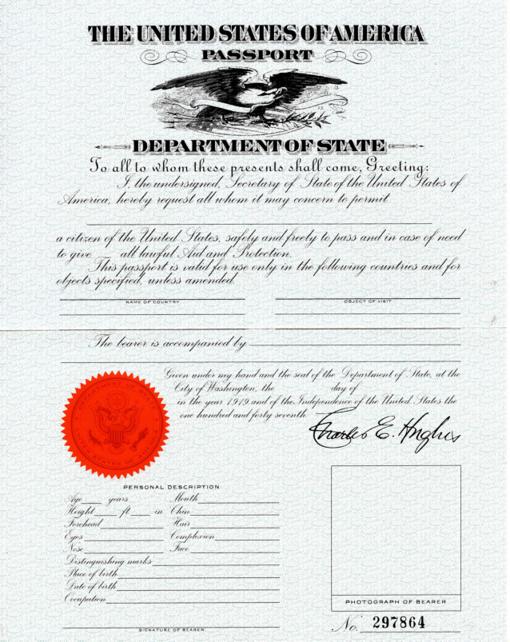 THE UNITED STATES OF AMERICA
PASSPORT
DEPARTMENT OF STATE
To all to whom these presents shall come, Greeting:
I, the undersigned, Secretary of State of the United States of
America, hereby request all whom it may concern to permit
a citizen of the United States, safely and freely to pass and in case of need
to give all lawful Aid and Protection.
This passport is valid for use only in the following countries and for
objects specified, unless amended.
NAME OF COUNTRY OBJECT OF VISIT
The bearer is accompanied by
Given under my hand and the seal of the Department of State, at the
City of Washington, the day of
in the year 1919 and of the Independence of the United States the
one hundred and forty seventh
Charles E. Hughes
PERSONAL DESCRIPTION
Age years Mouth
Height ft in Chin
Forehead Hair
Eyes Complexion
Nose Face
Distinguishing marks
Place of birth
Date of birth
Occupation
SIGNATURE OF BEARER
PHOTOGRAPH OF BEARER
No. 297864